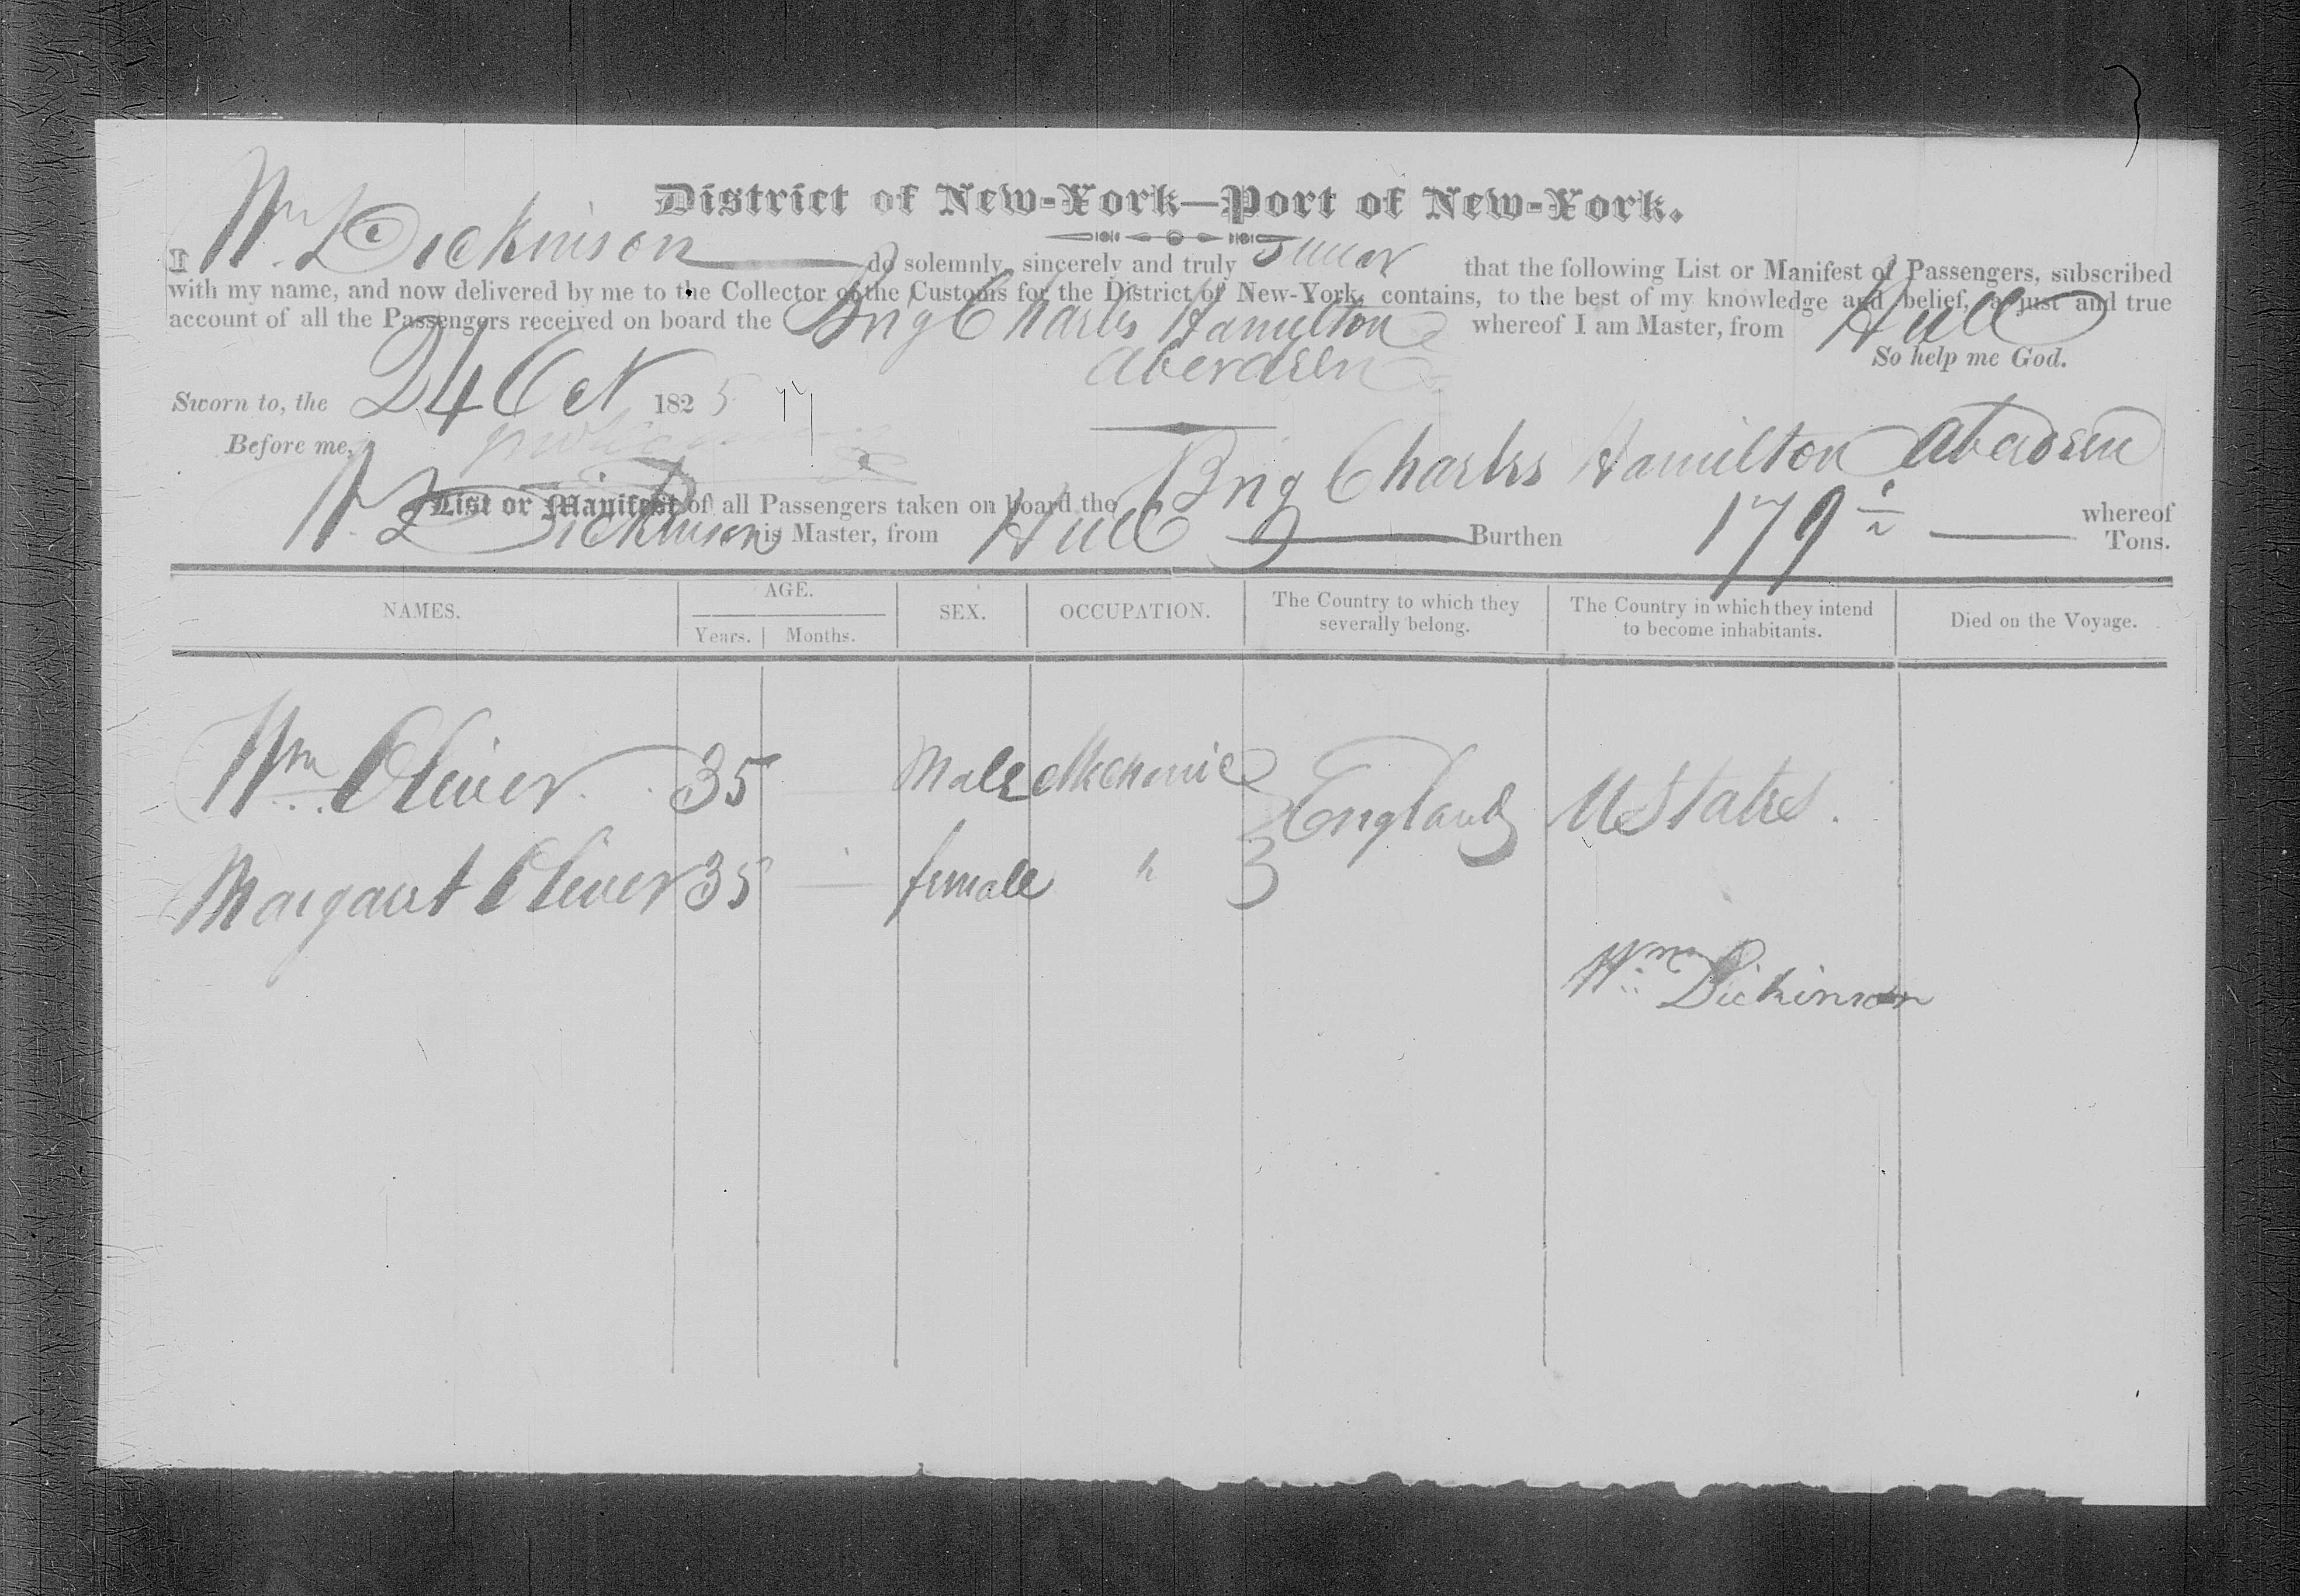 District of New-York—Port of New-York.
I Wm Dickinson do solemnly, sincerely and truly swear that the following List or Manifest of Passengers, subscribed
with my name, and now delivered by me to the Collector of the Customs for the District of New-York, contains, to the best of my knowledge and belief, a just and true
account of all the Passengers received on board the Brig Charles Hamilton whereof I am Master, from Hull
Aberdeen
So help me God.
Sworn to, the 24 Oct 1825
Before me,
List or Manifest of all Passengers taken on board the Brig Charles Hamilton Aberdeen whereof
Wm Dickinson is Master, from Hull Burthen 179 1/2 Tons.
NAMES. AGE. SEX. OCCUPATION. The Country to which they severally belong. The Country in which they intend to become inhabitants. Died on the Voyage.
Years. Months.
Wm Oliver 35 Male Mechanic England U States.
Margaret Oliver 35 female "
Wm Dickinson